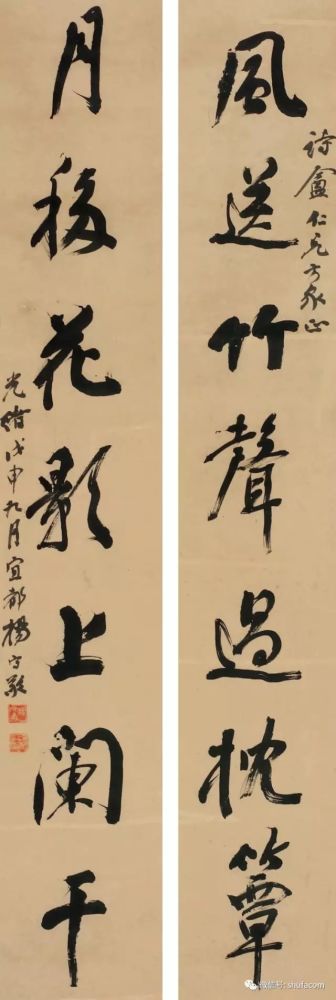 風送竹聲過枕簟
詩盦仁兄方家正
月移花影上闌干
光緒戊申九月宜都楊守敬
微信号: shufacom